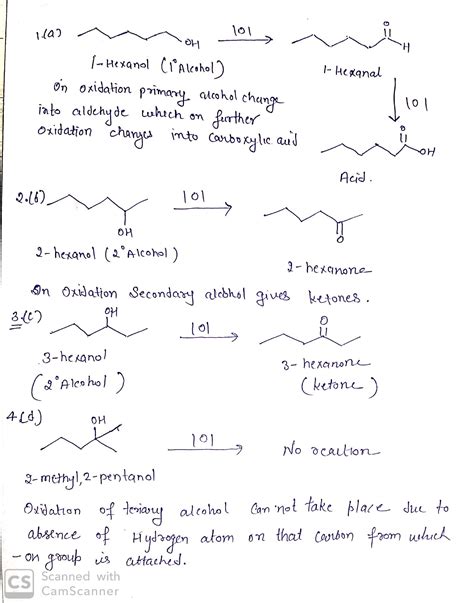 1.(a) OH [O] O H
1-Hexanol (1° Alcohol) 1-Hexanal
On oxidation primary alcohol change [O]
into aldehyde which on further
oxidation changes into carboxylic acid O OH
Acid.
2.(b) [O]
OH O
2-hexanol (2° Alcohol) 2-hexanone
On Oxidation Secondary alcohol gives ketones.
3.(c) OH [O] O
3-hexanol 3-hexanone
(2° Alcohol) (ketone)
4.(d) OH
[O] No reaction
2-methyl, 2-pentanol
Oxidation of teriary alcohol can not take place due to
absence of Hydrogen atom on that carbon from which
-OH group is attached.
CS Scanned with
CamScanner